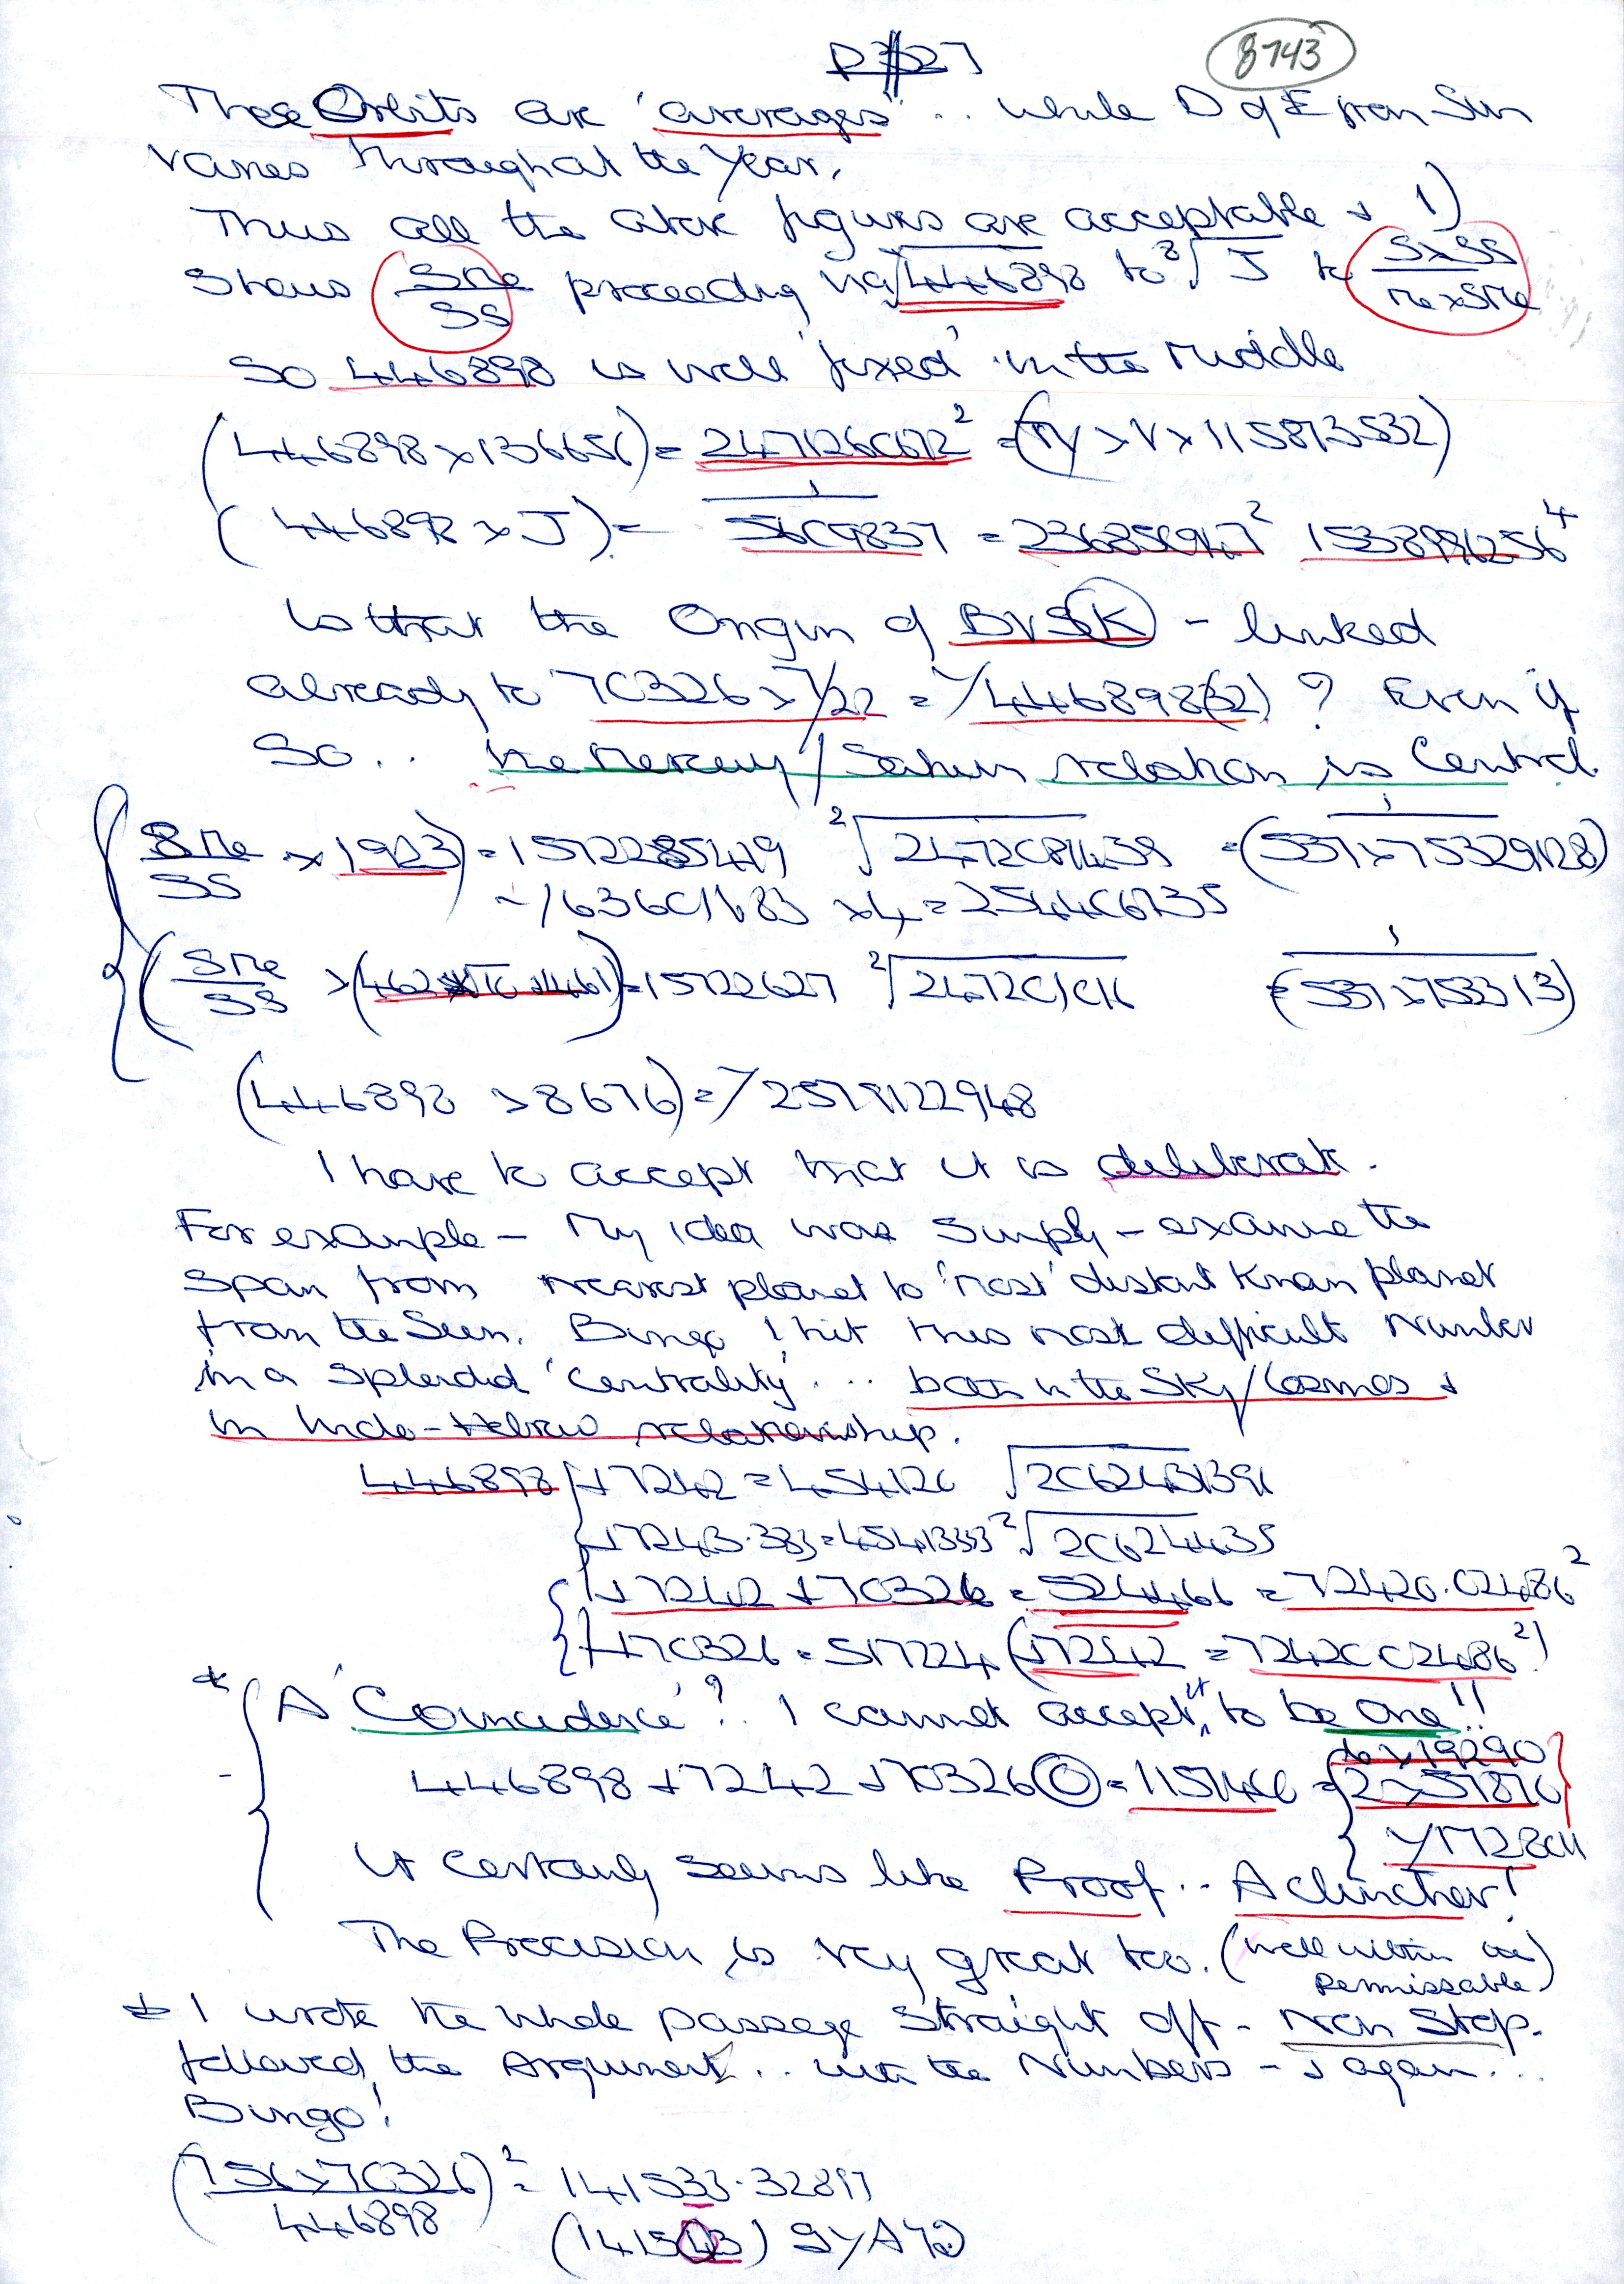 8743
These Orbits are 'averages' .. while D of E from Sun
varies throughout the Year.
Thus all the above figures are acceptable & 1)
Shows SMe/SS proceeding via √446898 to ³√J to SxSS/MexSMe
So 446898 is well 'fixed' in the Middle
(446898 x 136656) = 247126C672² = (TY x V x 115873532)
(446898 x J) = 5609837 = 23685C947² 1538996256⁴
Is that the Origin of BVSK - linked
already to 7C326 x 7/22 = Y446898(32) ? Even if
So .. the Mercury/Saturn relation is Central.
SMe/SS x 1923) = 1572285449 ²√2472C81439 = (537 x 75329128)
~ 1636C1683 x 4 = 2544C6735
(SMe/SS x ( 1461) = 15722627 ²√2472C1C16 = (537 x 753313)
(446898 x 8676) = Y2579122948
I have to accept that it is deliberate.
For example - My idea was simply - examine the
Span from nearest planet to 'most' distant known planet
from the Sun. Bingo I hit this most difficult Number
in a splendid 'Centrality' ... both in the Sky/Cosmos &
in Indo-Hebrew relationship.
446898 +7242 = 45412C √2C62431391
+7243.383 = 4541333 ²√2C624435
+7242 +7C326 = 524466 = 72420.02486²
+7C326 = 517224 (+7242 = 7242CC2486²)
* A 'Coincidence'? I cannot accept it to be One!!
446898 +7242 +7C326(0) = 115740C = 2 x 5787C
6 x 19290
It Certainly seems like Proof .. A clincher!
The Precision is very great too. (Well within the
Permissable)
* I wrote the whole passage straight off - Non Stop.
followed the Argument .. with the Numbers - & again ...
Bingo!
(756 x 7C326/446898)² = 141533.32897
(141543) SYAYD